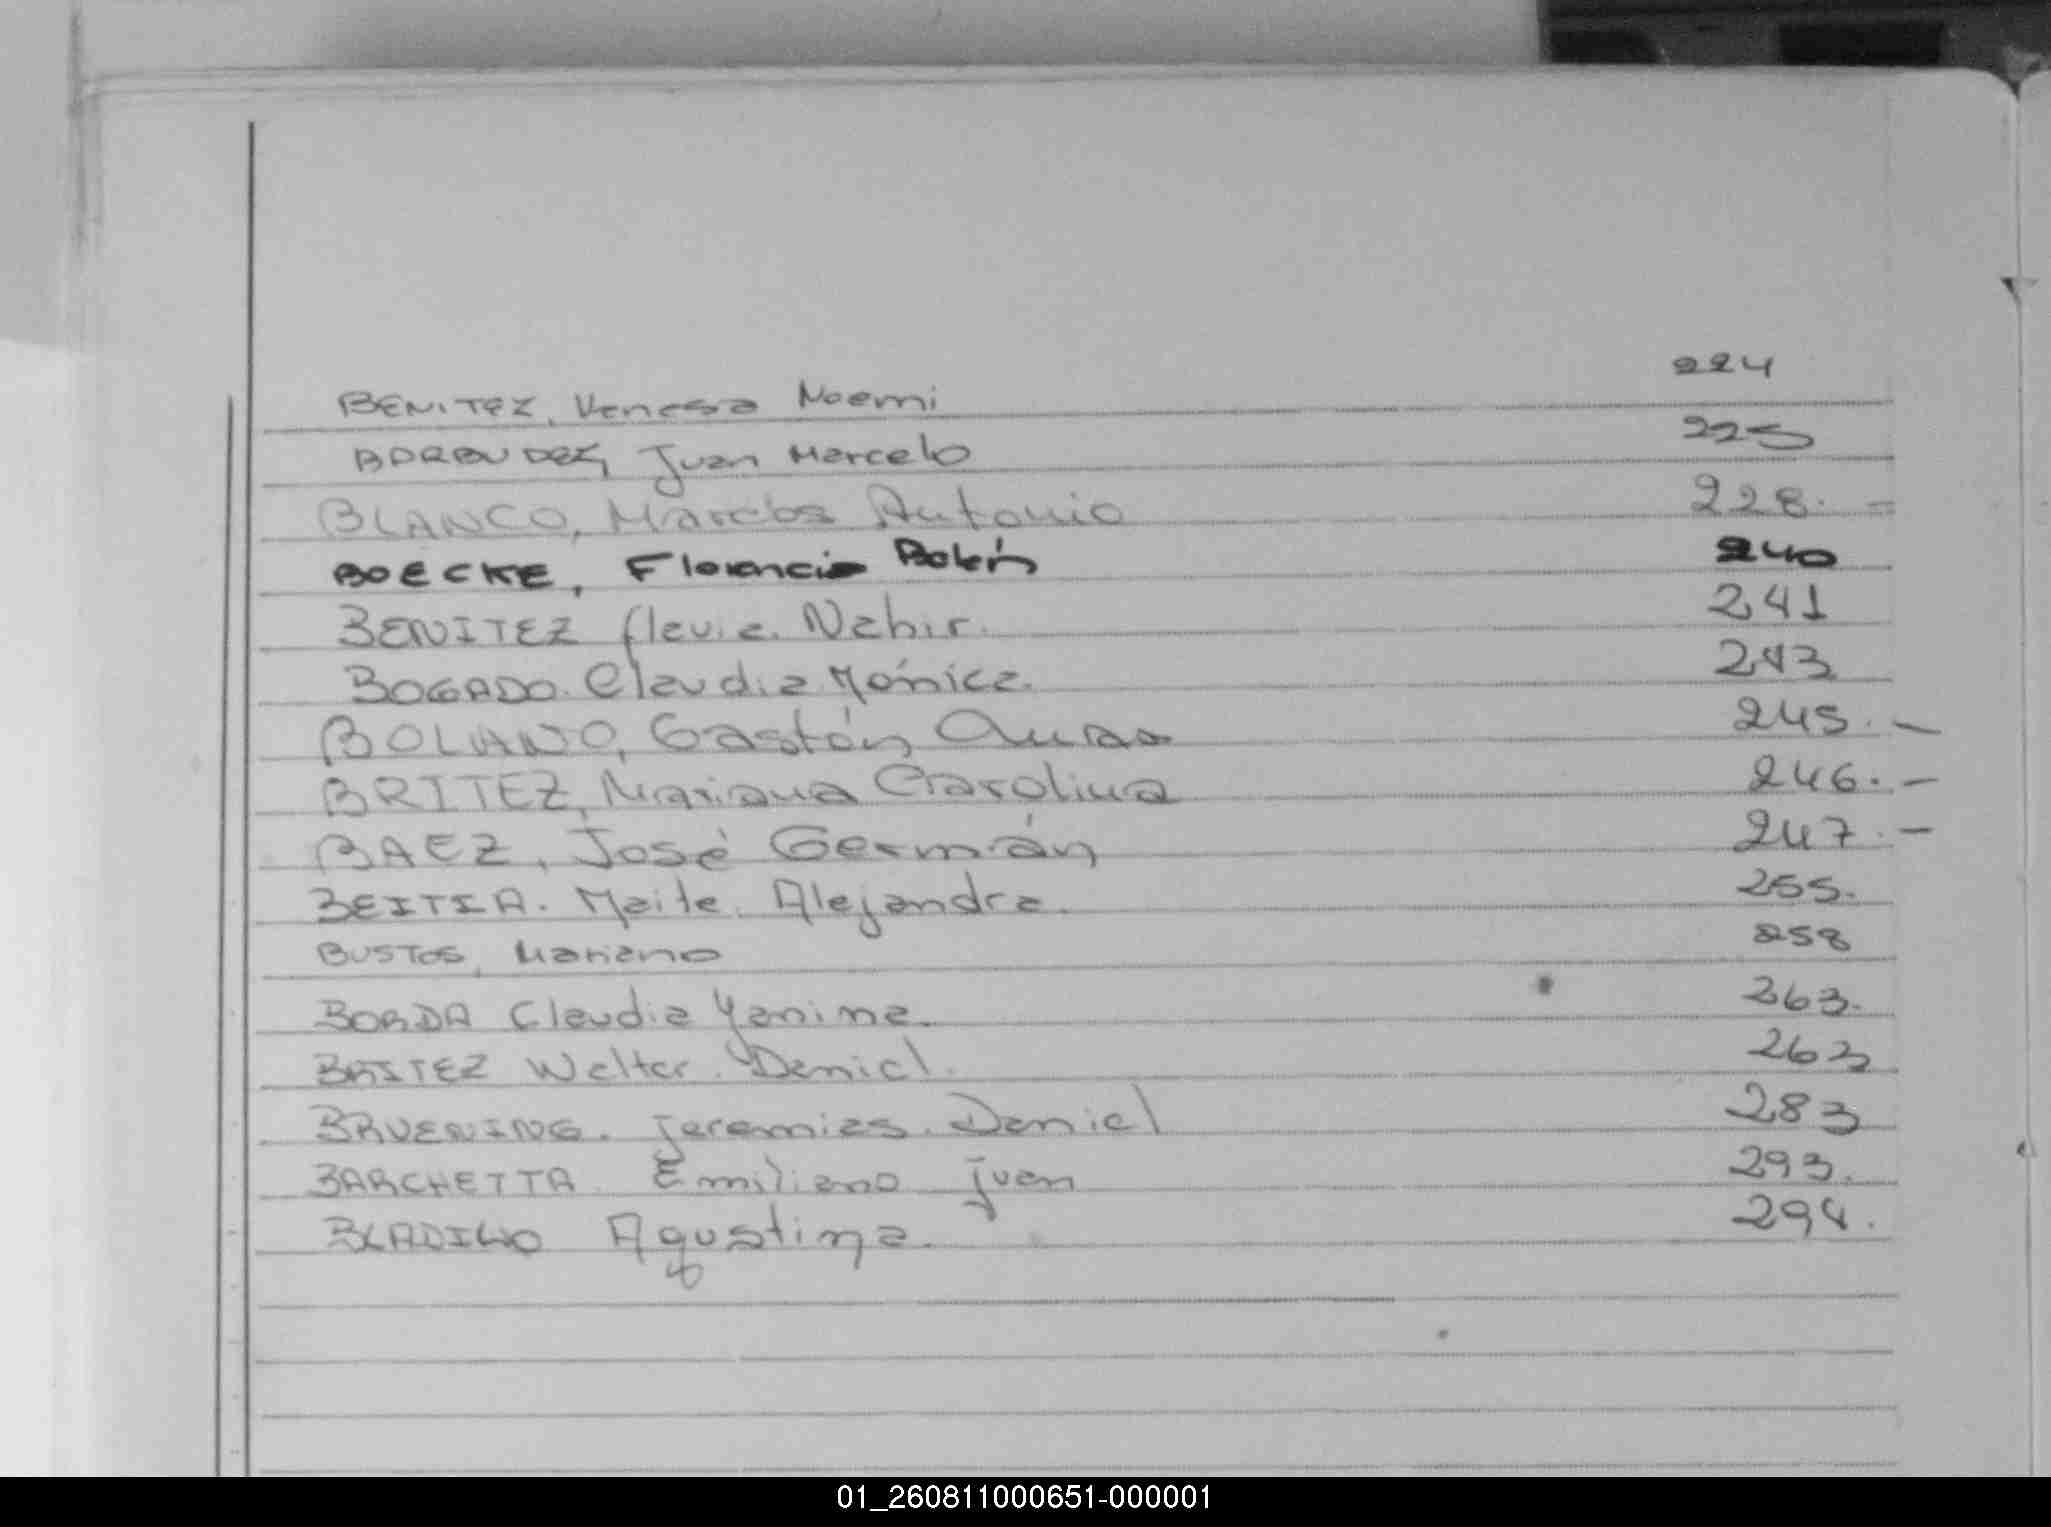 BENITEZ, Vanesa Noemi 224
BARBUDEZ, Juan Marcelo 225
BLANCO, Marcos Antonio 228. -
BOECKE, Florencia Belén 240
BENITEZ flavia. Nahir. 241
BOGADO. Claudia Mónica. 243
BOLANO, Gastón 245. -
BRITEZ, Mariana Carolina 246. -
BAEZ, José Germán 247. -
BEITIA. Maite. Alejandra. 255.
BUSTOS, Mariano 258
BORDA Claudia Yanina. 263.
BRITEZ Walter. Daniel. 263
BRUENING. Jeremias. Daniel 283
BARCHETTA. Emiliano juan 293.
Agustina. 294.
01_260811000651-000001